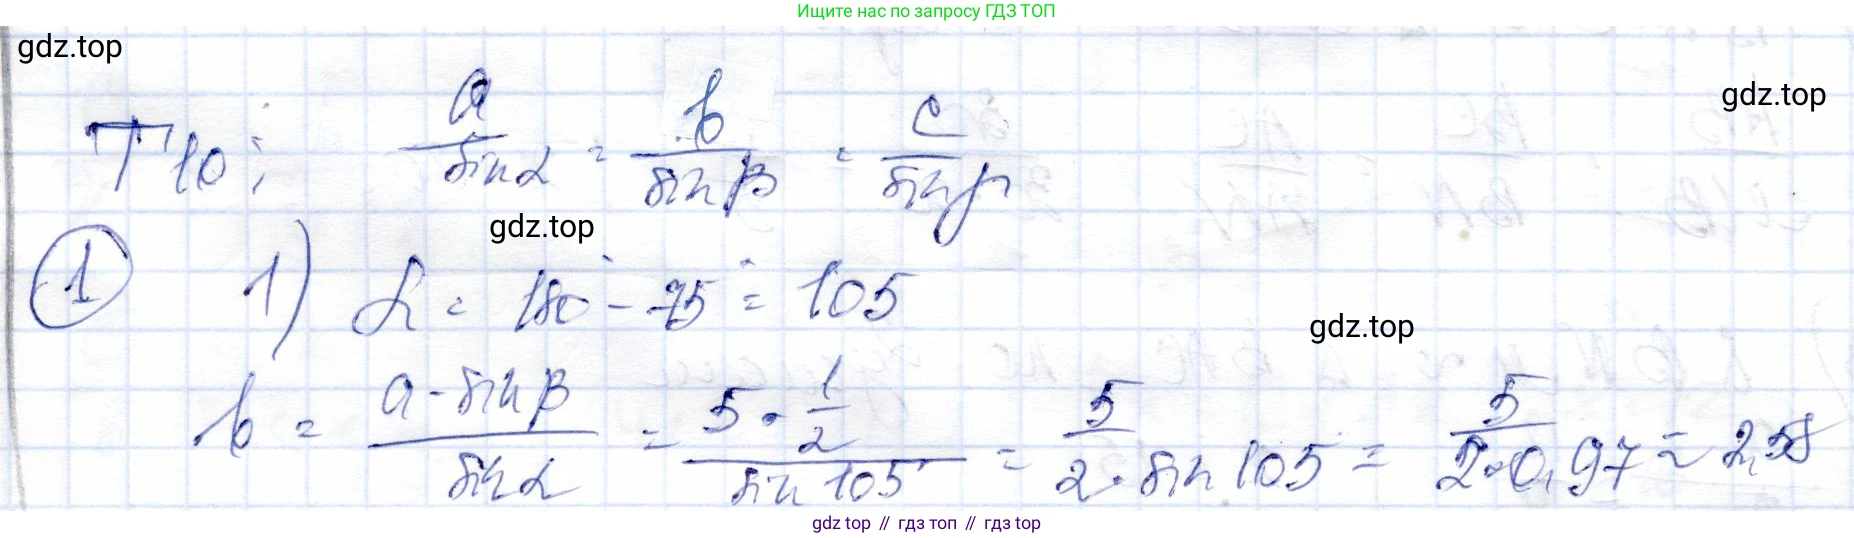 Ищите нас по запросу ГДЗ ТОП
gdz.top
gdz.top
Т10: a/sinα = b/sinβ = c/sinγ
gdz.top
① 1) α = 180° - 75° = 105
gdz.top
b = a·sinβ/sinα = 5·1/2/sin105° = 5/2·sin105 = 5/2·0,97 ≈ 2,58
gdz top // гдз топ // гдз top